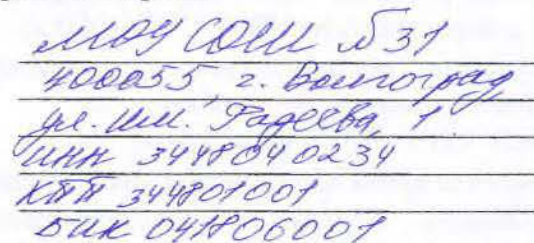 МОУ СОШ №31
400055, г. Волгоград,
ул. им. Фадеева, 1.
ИНН 3448040234
КПП 344801001
БИК 041806001